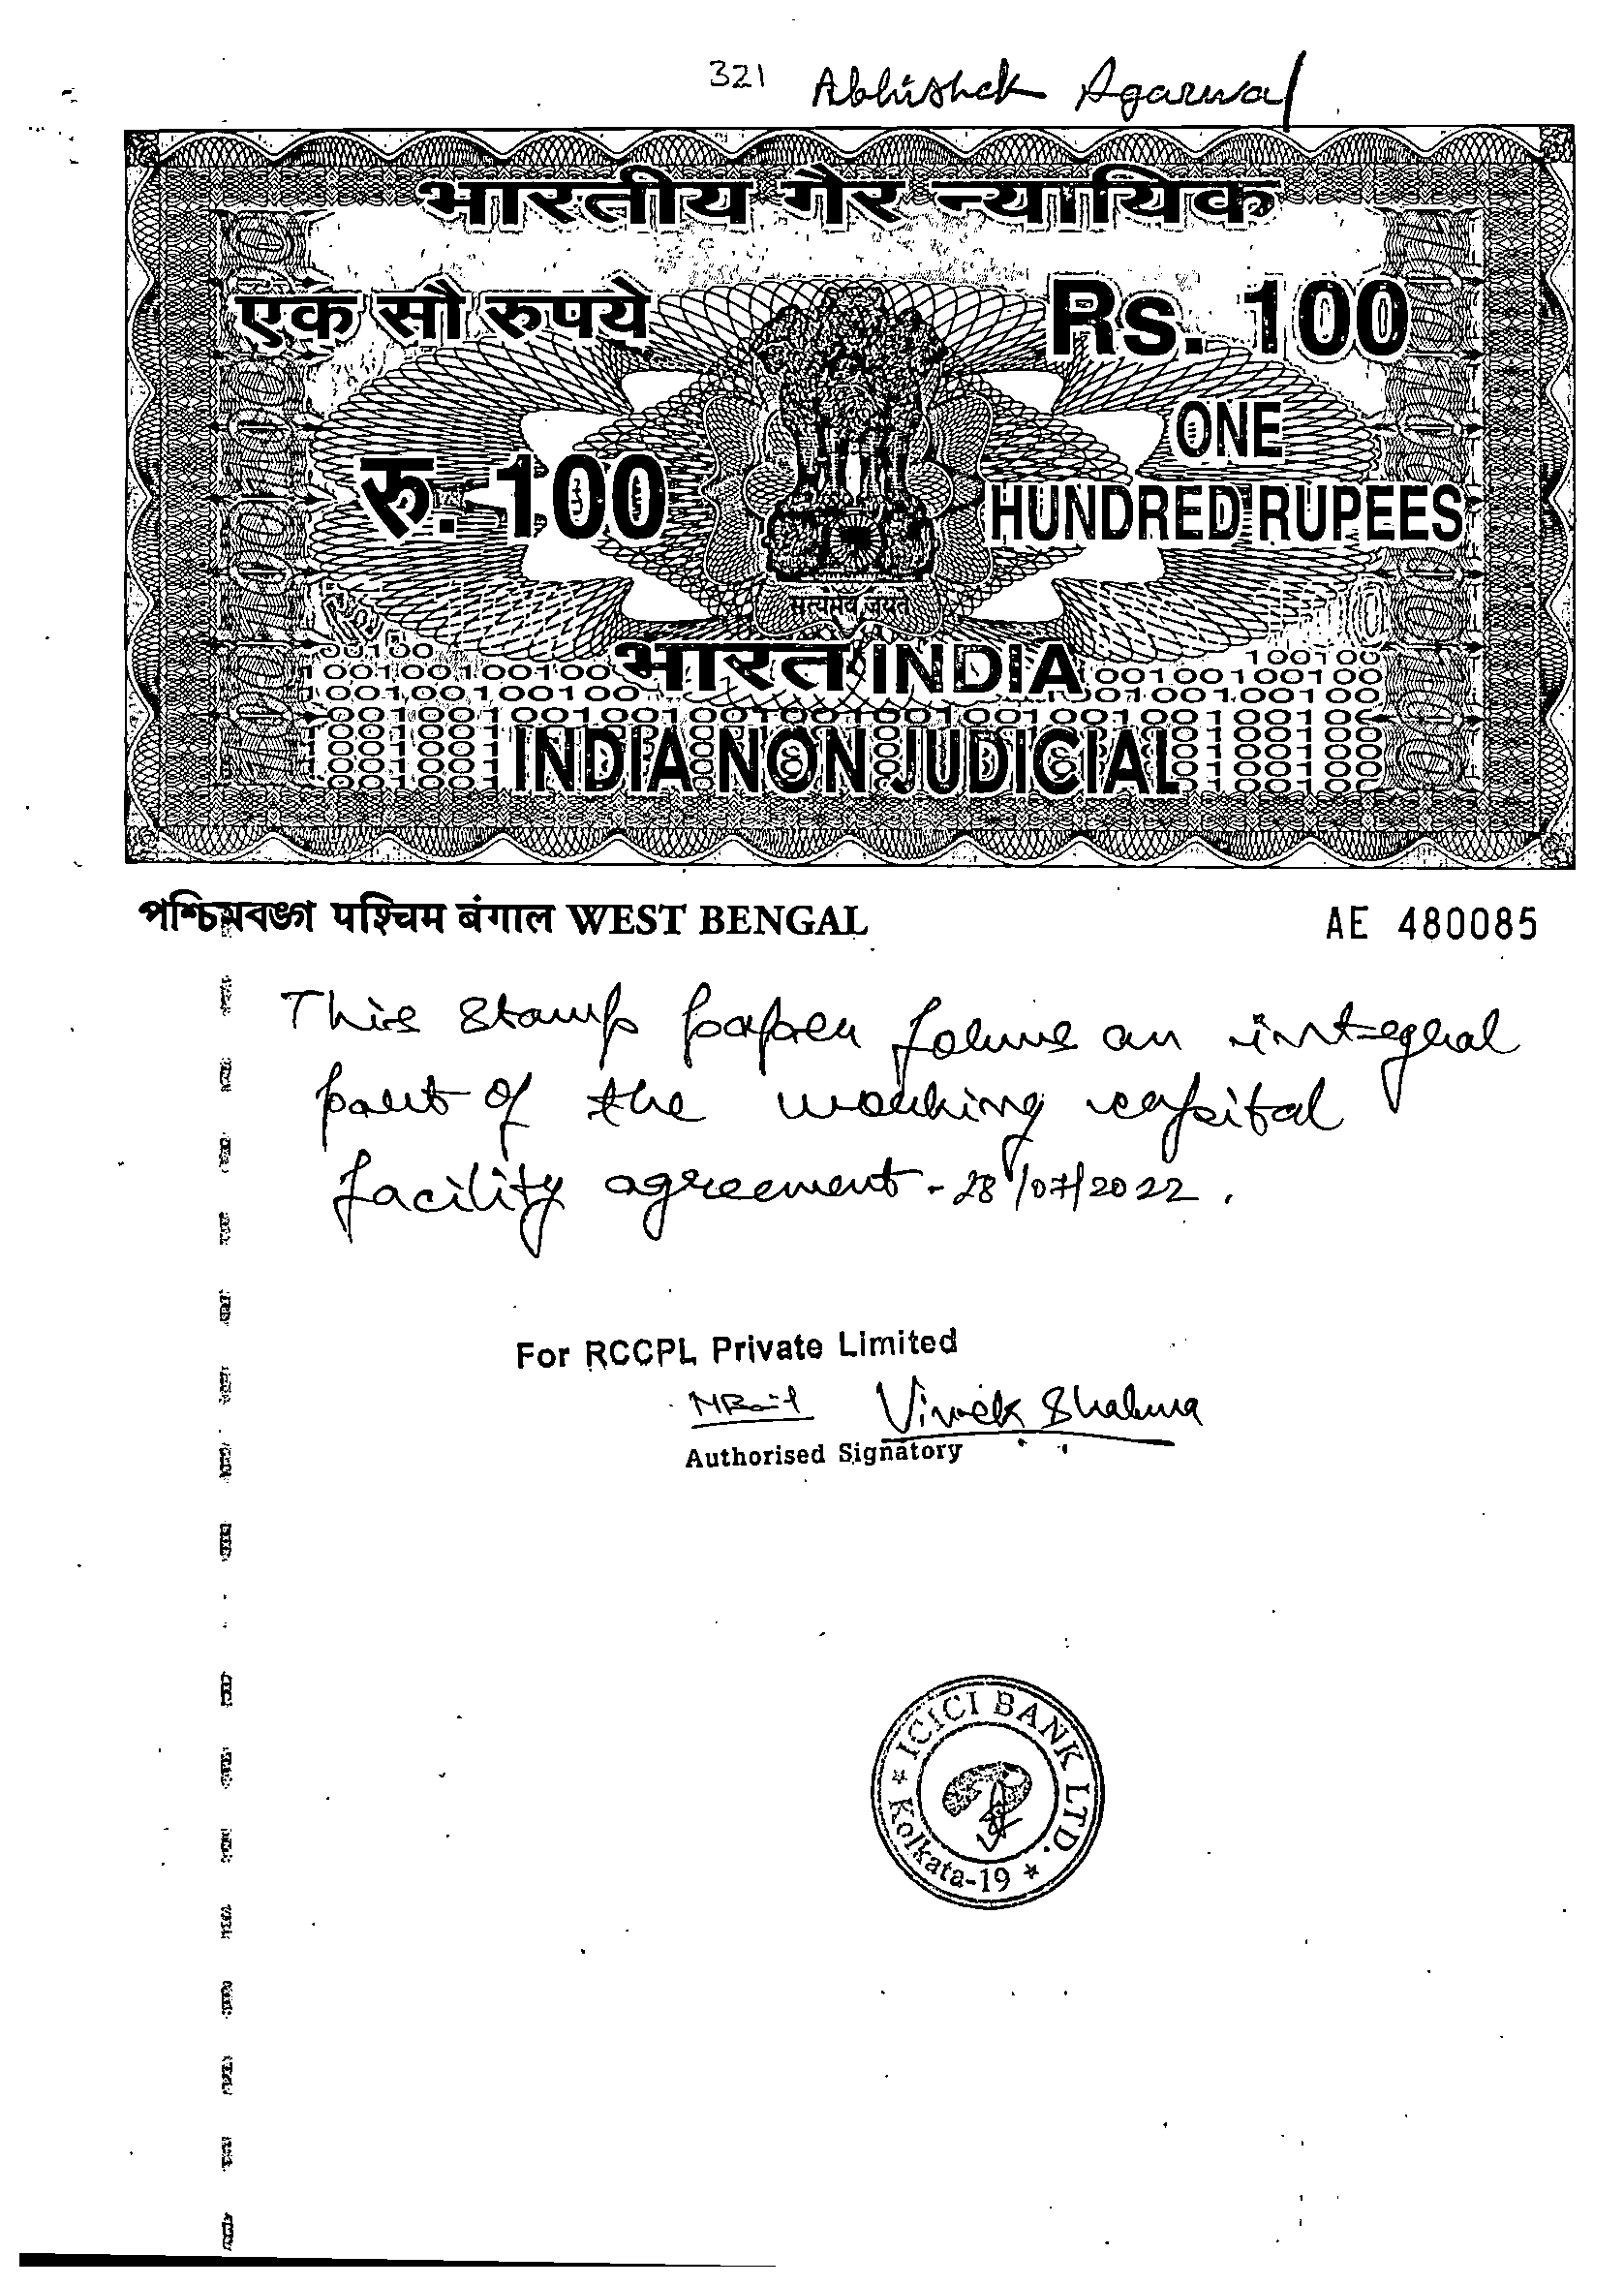 321 Abhishek Agarwal
भारतीय गैर न्यायिक
एक सौ रुपये
Rs. 100
रु. 100
ONE
HUNDRED RUPEES
सत्यमेव जयते
भारत INDIA
INDIA NON JUDICIAL
পশ্চিমবঙ্গ पश्चिम बंगाल WEST BENGAL
AE 480085
This stamp paper forms an integral
part of the working capital
facility agreement - 28/07/2022.
For RCCPL Private Limited
Vivek Sharma
Authorised Signatory
ICICI BANK LTD.
Kolkata-19